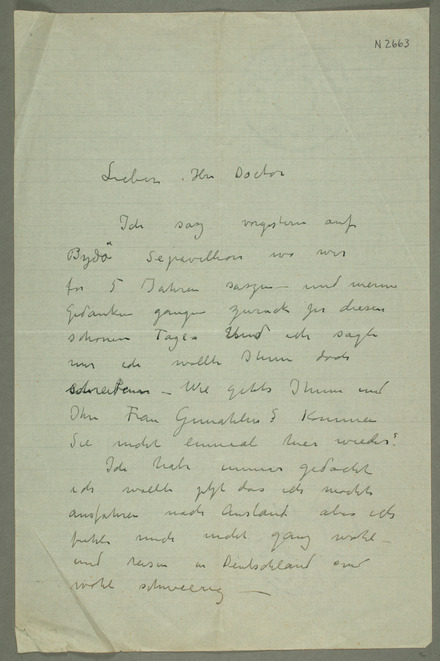 N 2663
Lieber Herr Doctor
Ich sasz vorgestern auf
Bygdö Sepavillion wo wir
for 5 Jahren saszen – und meine
Gedanken gangen zurück zu diesen
schönen Tage – Und ich sagte
mir ich wollte Ihnen doch
schreiben – Wie gehts Ihnen und
Ihr Frau Gemahlin? Kommen
Sie nicht einmal hier wieder?
Ich habe immer gedacht
ich wollte jetzt das ich mochte
ausfahren nach Ausland aber ich
fühle mich nicht ganz wohl –
und reisen in Deutschland sind
wohl schweerig –